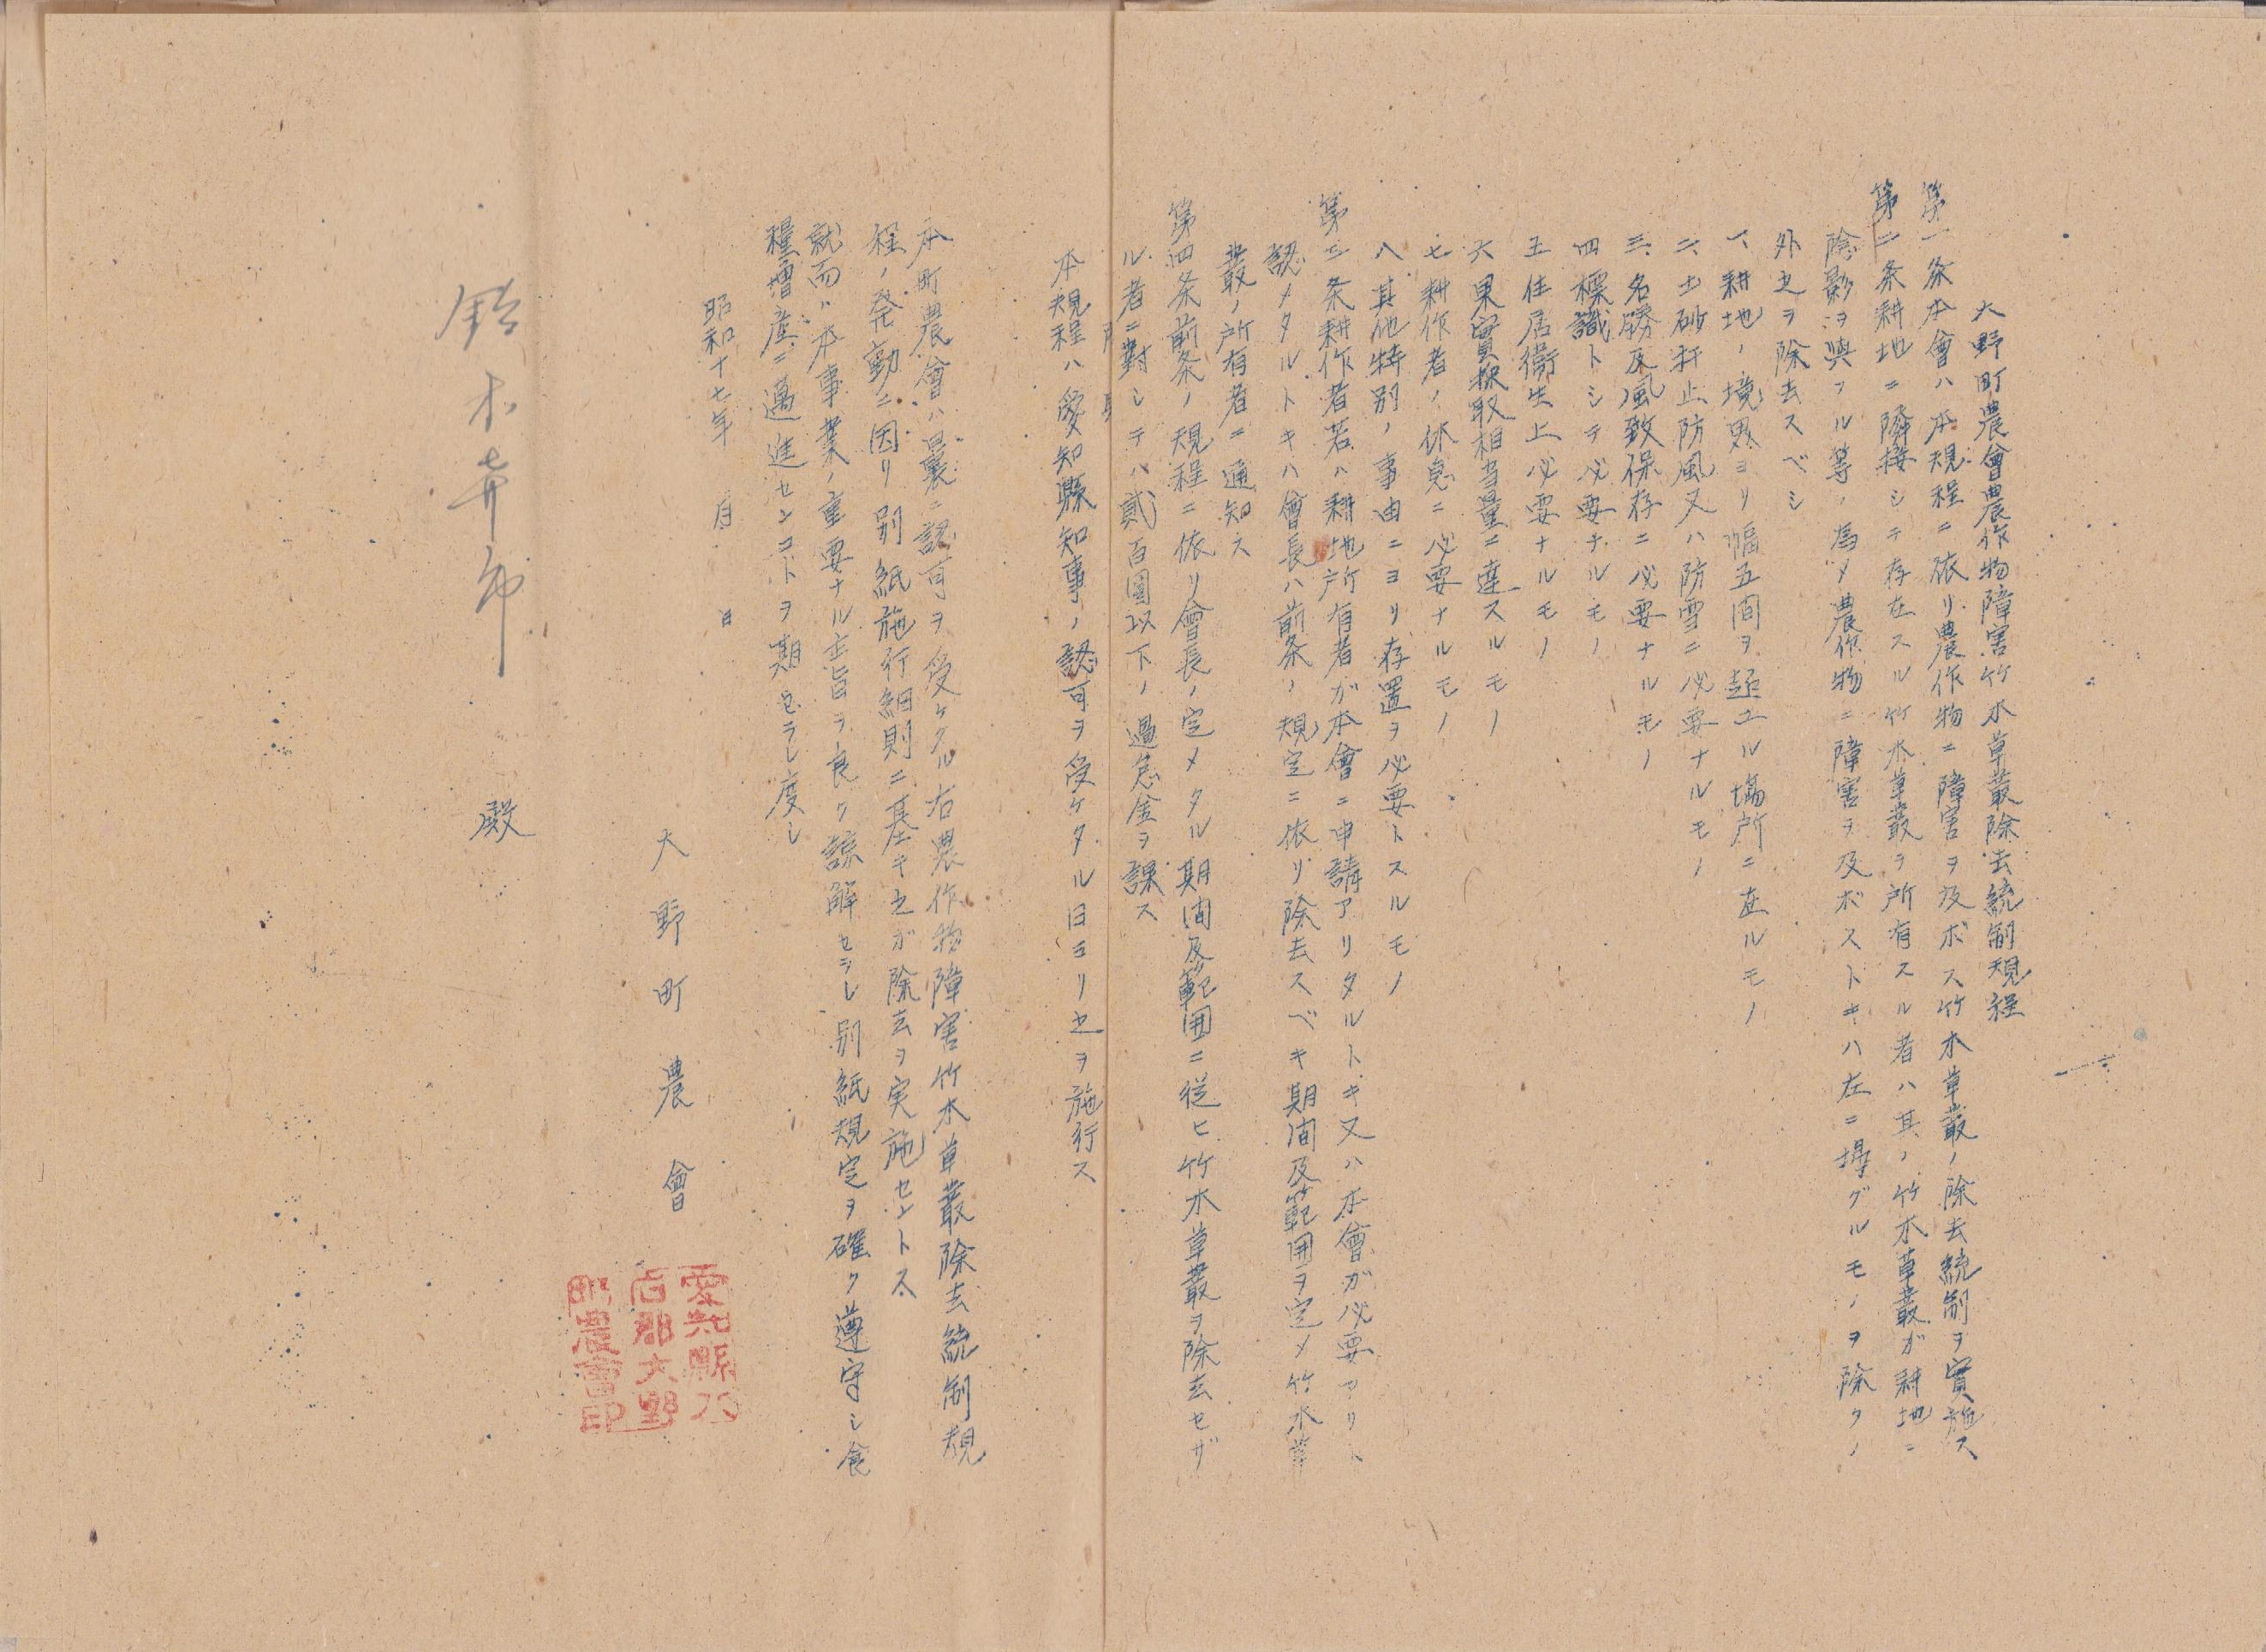 大野町農會農作物障害竹木草叢除去統制規程
第一条本會ハ本規程ニ依リ農作物ニ障害ヲ及ボス竹木草叢ノ除去統制ヲ實施ス
第二条耕地ニ隣接シテ存在スル竹木草叢ヲ所有スル者ハ其ノ竹木草叢ガ耕地ニ
陰影ヲ與フル等ノ為メ農作物ニ障害ヲ及ボストキハ左ニ掲グルモノヲ除クノ
外之ヲ除去スベシ
一、耕地ノ境界ヨリ幅五間ヲ超ユル場所ニ在ルモノ
二、土砂扞止防風又ハ防雪ニ必要ナルモノ
三、名勝及風致保存ニ必要ナルモノ
四標識トシテ必要ナルモノ
五住居衛生上必要ナルモノ
六果實採取相当量ニ達スルモノ
七耕作者ノ休息ニ必要ナルモノ
八其他特別ノ事由ニヨリ存置ヲ必要トスルモノ
第三条耕作者若ハ耕地所有者ガ本會ニ申請アリタルトキ又ハ本會ガ必要アリト
認メタルトキハ會長ハ前条ノ規定ニ依リ除去スベキ期間及範囲ヲ定メ竹木草
叢ノ所有者ニ通知ス
第四条前条ノ規程ニ依リ會長ノ定メタル期間及範囲ニ従ヒ竹木草叢ヲ除去セザ
ル者ニ對シテハ貳百圓以下ノ過怠金ヲ課ス
本規程ハ愛知縣知事ノ認可ヲ受ケタル日ヨリ之ヲ施行ス
本町農會ハ曩ニ認可ヲ受ケタル右農作物障害竹木草叢除去統制規
程ノ発動ニ因リ別紙施行細則ニ基キ之ガ除去ヲ実施セントス
就而ハ本事業ノ重要ナル主旨ヲ良ク諒解セラレ別紙規定ヲ確ク遵守シ食
糧増産ニ邁進センコトヲ期セラレ度シ
昭和十七年　月　日
大野町農會
愛知縣乃
名郡大野
町農會印
鈴木 殿